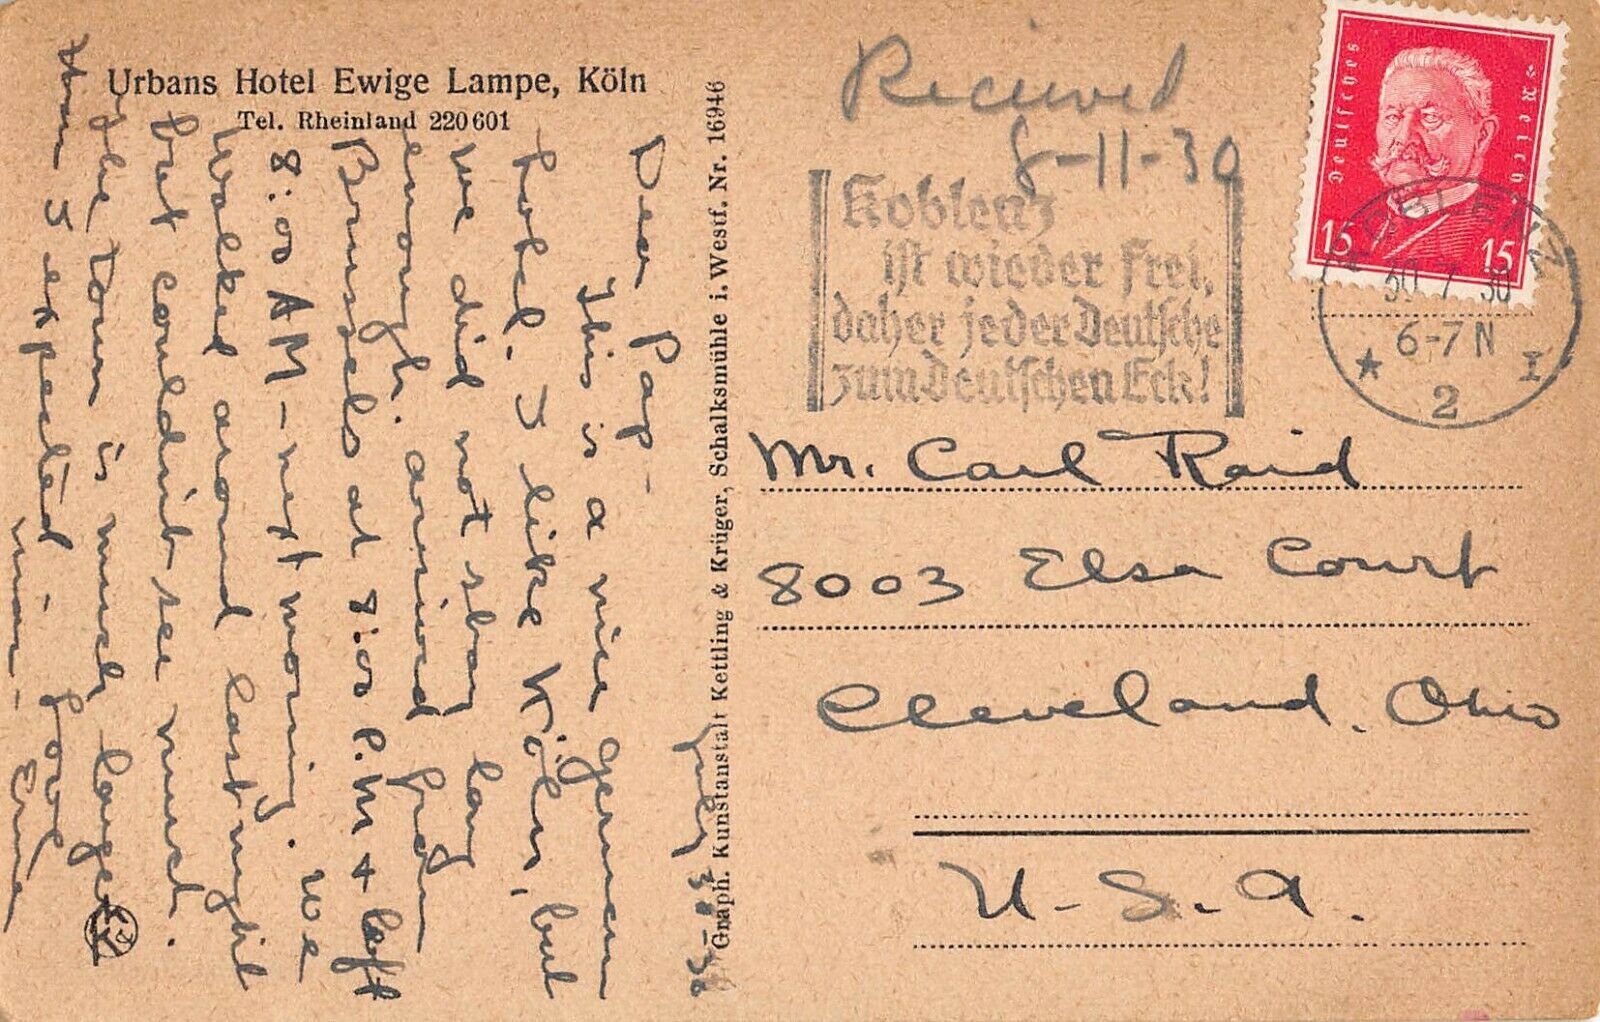 Urbans Hotel Ewige Lampe, Köln
Tel. Rheinland 220601
July 30-30
Dear Pap-
This is a nice German
hotel. I like Köln, but
we did not stay long
enough. arrived from
Brussels at 8:00 P.M + left
8:00 AM - next morning. We
Walked around last night
but couldn't see much.
The town is much larger
than I expected - Love
Graph. Kunstanstalt Kettling & Krüger, Schalksmühle i. Westf. Nr. 16946
Received
8-11-30
Deutsches Reich
15 15
Koblenz
ist wieder frei,
daher jeder Deutsche
zum Deutschen Eck!
KOBLENZ
30.7.30
6-7 N
★ 2 I
Mr. Carl Raid
8003 Elsa Court
Cleveland, Ohio
U.S.A.